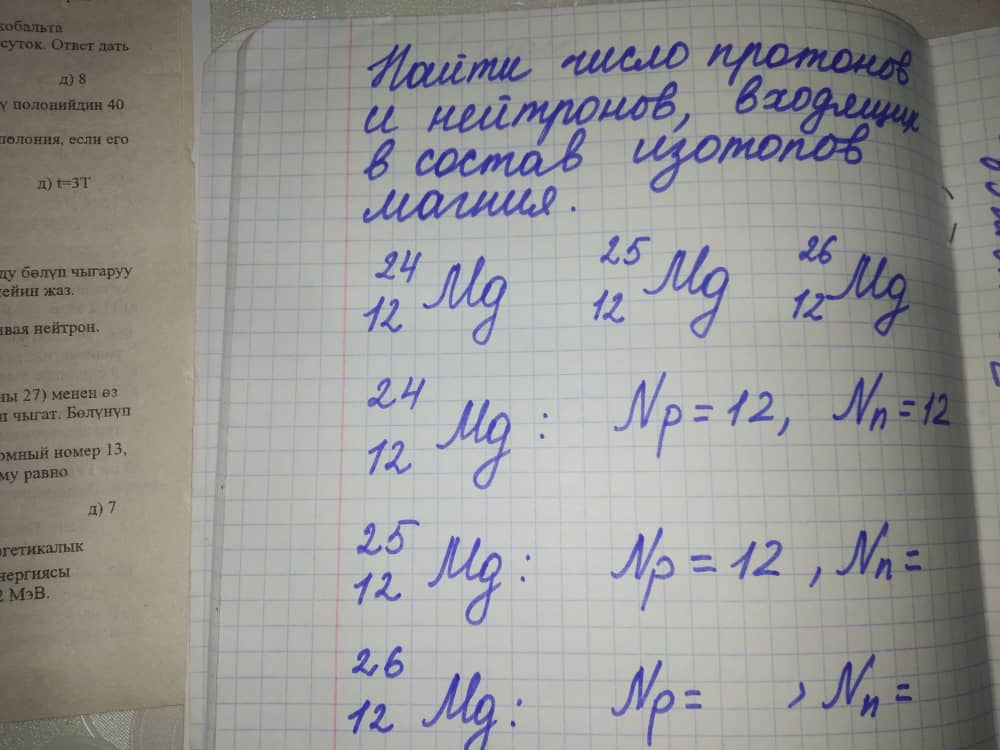 кобальта
суток. Ответ дать
д) 8
ү полонийдин 40
полония, если его
д) t=3T
ду бөлүп чыгаруу
чейин жаз.
ивая нейтрон.
ны 27) менен өз
п чыгат. Бөлүнүп
омный номер 13,
му равно
д) 7
ргетикалык
нергиясы
2 МэВ.
Найти число протонов
и нейтронов, входящих
в состав изотопов
магния.
²⁴₁₂Mg ²⁵₁₂Mg ²⁶₁₂Mg
²⁴₁₂Mg: Np = 12, Nn = 12
²⁵₁₂Mg: Np = 12, Nn =
²⁶₁₂Mg: Np = , Nn =